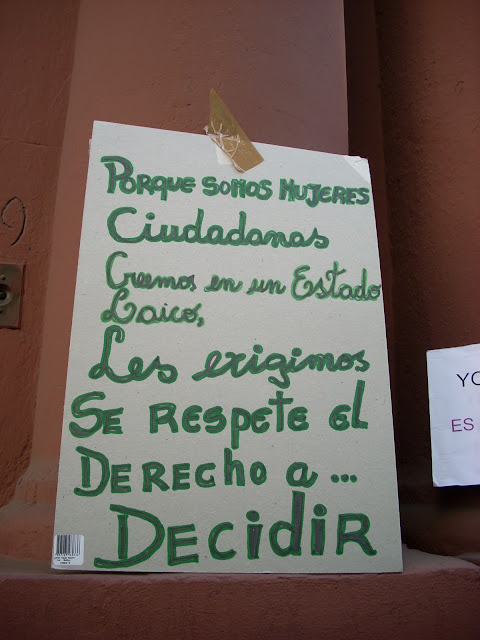 Porque somos Mujeres
Ciudadanas
Creemos en un Estado
Laico,
Les exigimos
Se respete el
Derecho a ...
Decidir
YO
ES
9